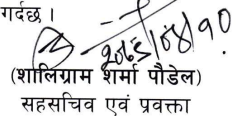 गर्दछ ।
२०७३/०४/१०
(शालिग्राम शर्मा पौडेल)
सहसचिव एवं प्रवक्ता